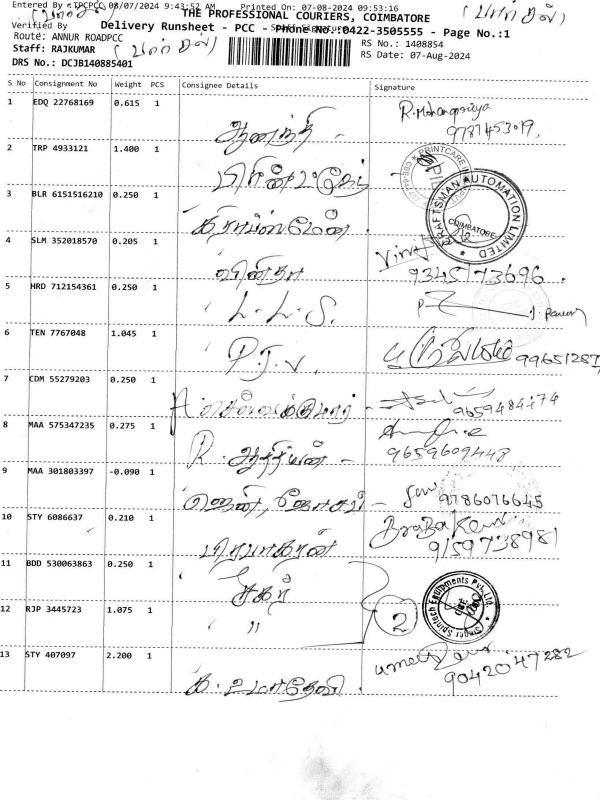 Entered By :TPCPCC,08/07/2024 9:43:52 AM Printed On: 07-08-2024 09:53:16
THE PROFESSIONAL COURIERS, COIMBATORE
Verified By
Delivery Runsheet - PCC - Phone No.:0422-3505555 - Page No.:1
Route: ANNUR ROADPCC
RS No.: 1408854
Staff: RAJKUMAR
RS Date: 07-Aug-2024
DRS No.: DCJB140885401
S No Consignment No Weight PCS Consignee Details Signature
1 EDQ 22768169 0.615 1 ஆனந்த் - R.Mohanapriya
9787453019,
2 TRP 4933121 1.400 1
3 BLR 6151516210 0.250 1 CRAFTSMAN AUTOMATION LIMITED
COIMBATORE
4 SLM 352018570 0.205 1 வினிதா
9345173696.
5 HRD 712154361 0.250 1 L.L.S.
6 TEN 7767048 1.045 1 P.J.V.
7 CDM 55279203 0.250 1 A செல்வக்குமார் -
9659484774
8 MAA 575347235 0.275 1 R.
9659609448
9 MAA 301803397 -0.090 1 ஜெனி, ஜோசப் -
9786076645
10 STY 6086637 0.210 1 பிரபாகரன்
9159738981
11 BDD 530063863 0.250 1 சேகர்
12 RJP 3445723 1.075 1 " 2
13 STY 407097 2.200 1 க. உமாதேவி.
9042047282